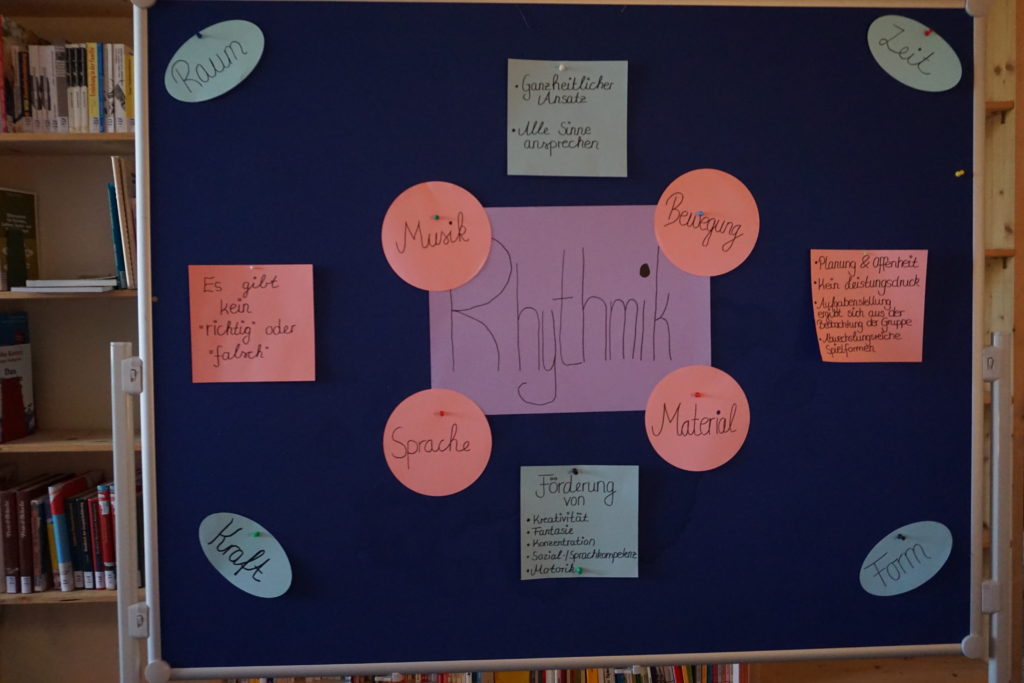 Raum
Zeit
• Ganzheitlicher
Ansatz
• Alle Sinne
ansprechen
Musik
Bewegung
Rhythmik
Es gibt
kein
"richtig" oder
"falsch"
• Planung & Offenheit
• Kein Leistungsdruck
• Aufgabenstellung
ergibt sich aus der
Beobachtung der Gruppe
• Abwechslungsreiche
Spielformen
Sprache
Material
Förderung
von
• Kreativität
• Fantasie
• Konzentration
• Sozial-/Sprachkompetenz
• Motorik
Kraft
Form